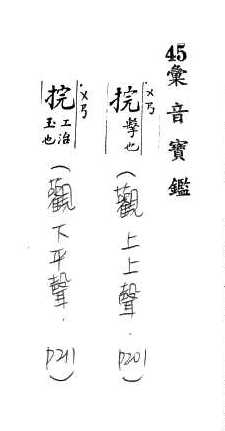 45彙音寶鑑
捖 ㄨㄢ 擊也 (觀上上聲. P201)
捖 ㄨㄢˊ 工治玉也 (觀下平聲. P211)